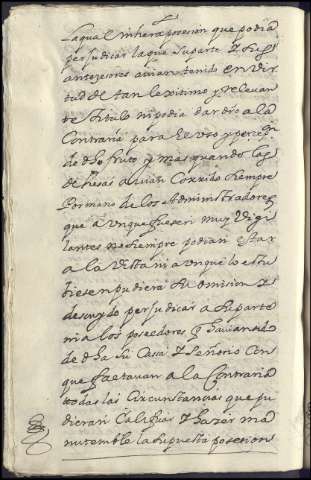 La qualinhera posesion que podia
perjudicar la que su parte y sus
antezesores avian tenido en vir
tud de tan lexitimo y relevan
te titulo ni podia dar dro a la
Contraria para el uso y perceon
de dho fruto, y mas quando las
dehesas avian Corrido siempre
Por mano de los Administradores
que aunque fuesen muy vigi
lantes no siempre podian estar
a la vista ni aunque lo estu
biesen pudiera su omision o
descuydo perjudicar a su parte
ni a los poseedores q haviansido
de dha su Casa y Señorio Con
que faltavan a la Contraria
todas las Circunstancias que pu
dieran Calificar y hazer ma
nutenible la supuesta posesion